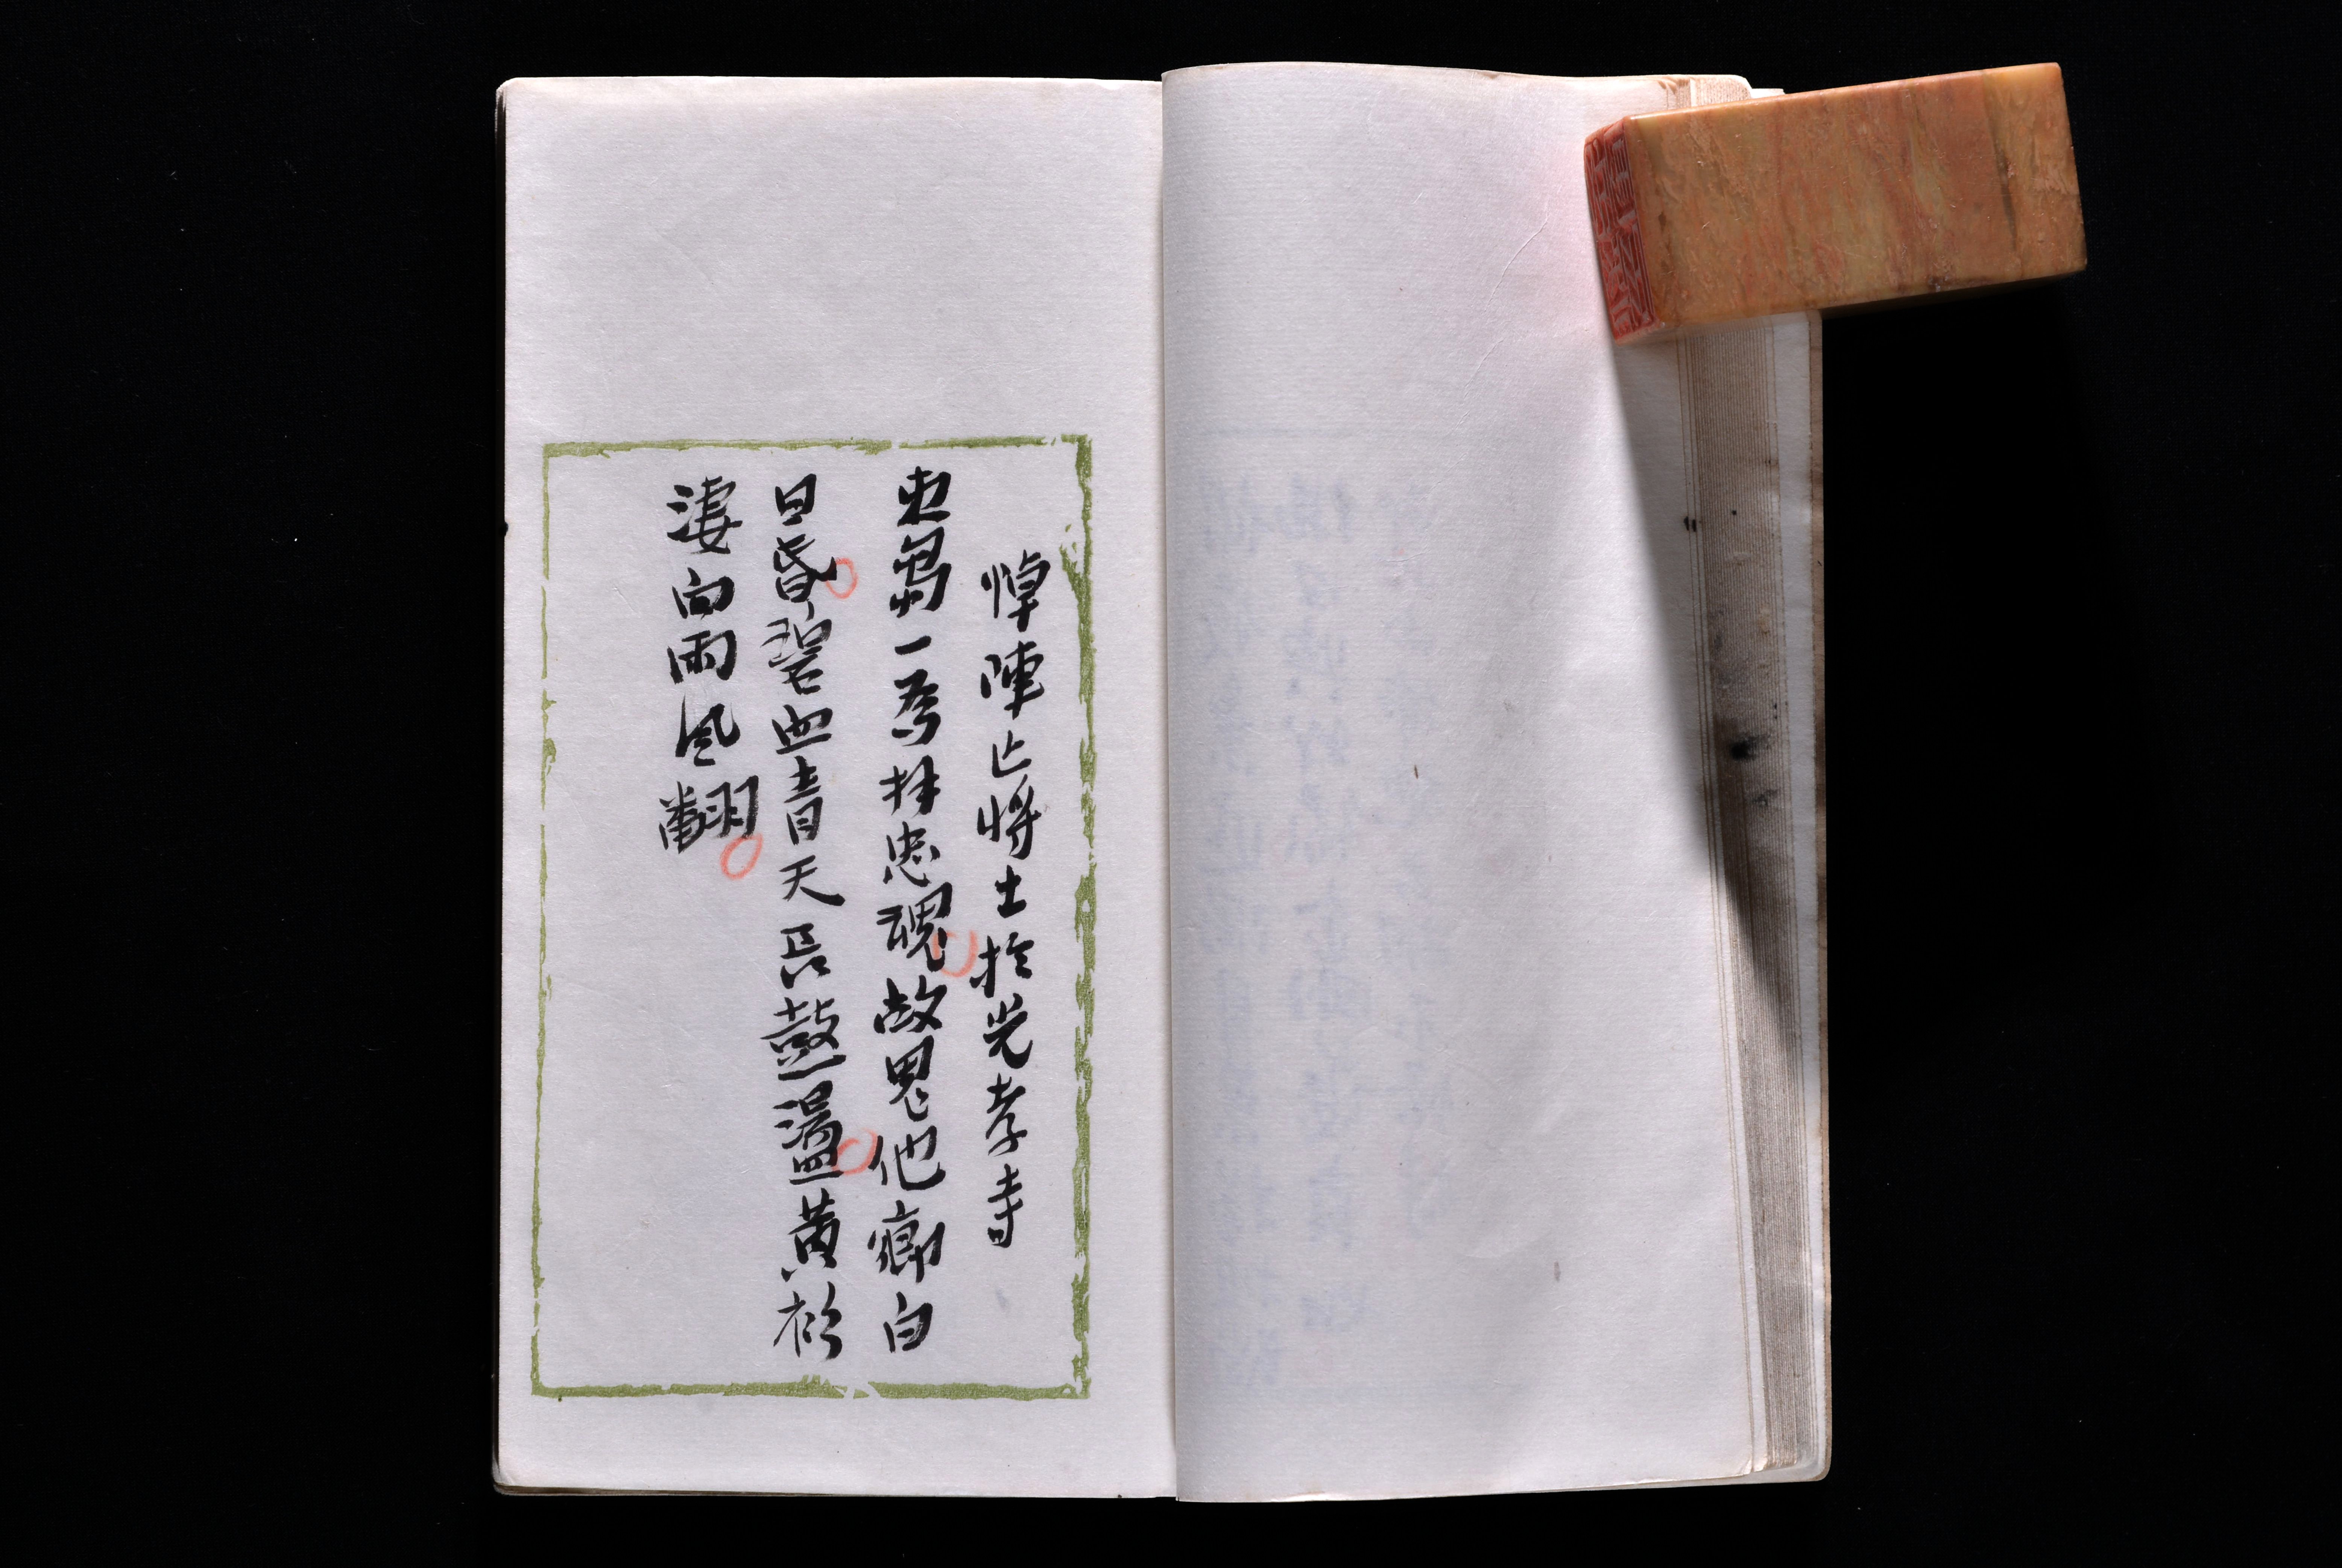 悼陣亡將士於光孝寺
束芻一爲拜忠魂故鬼他鄉白
日昏碧血青天長鼓盪黄衫
淒向雨風翻